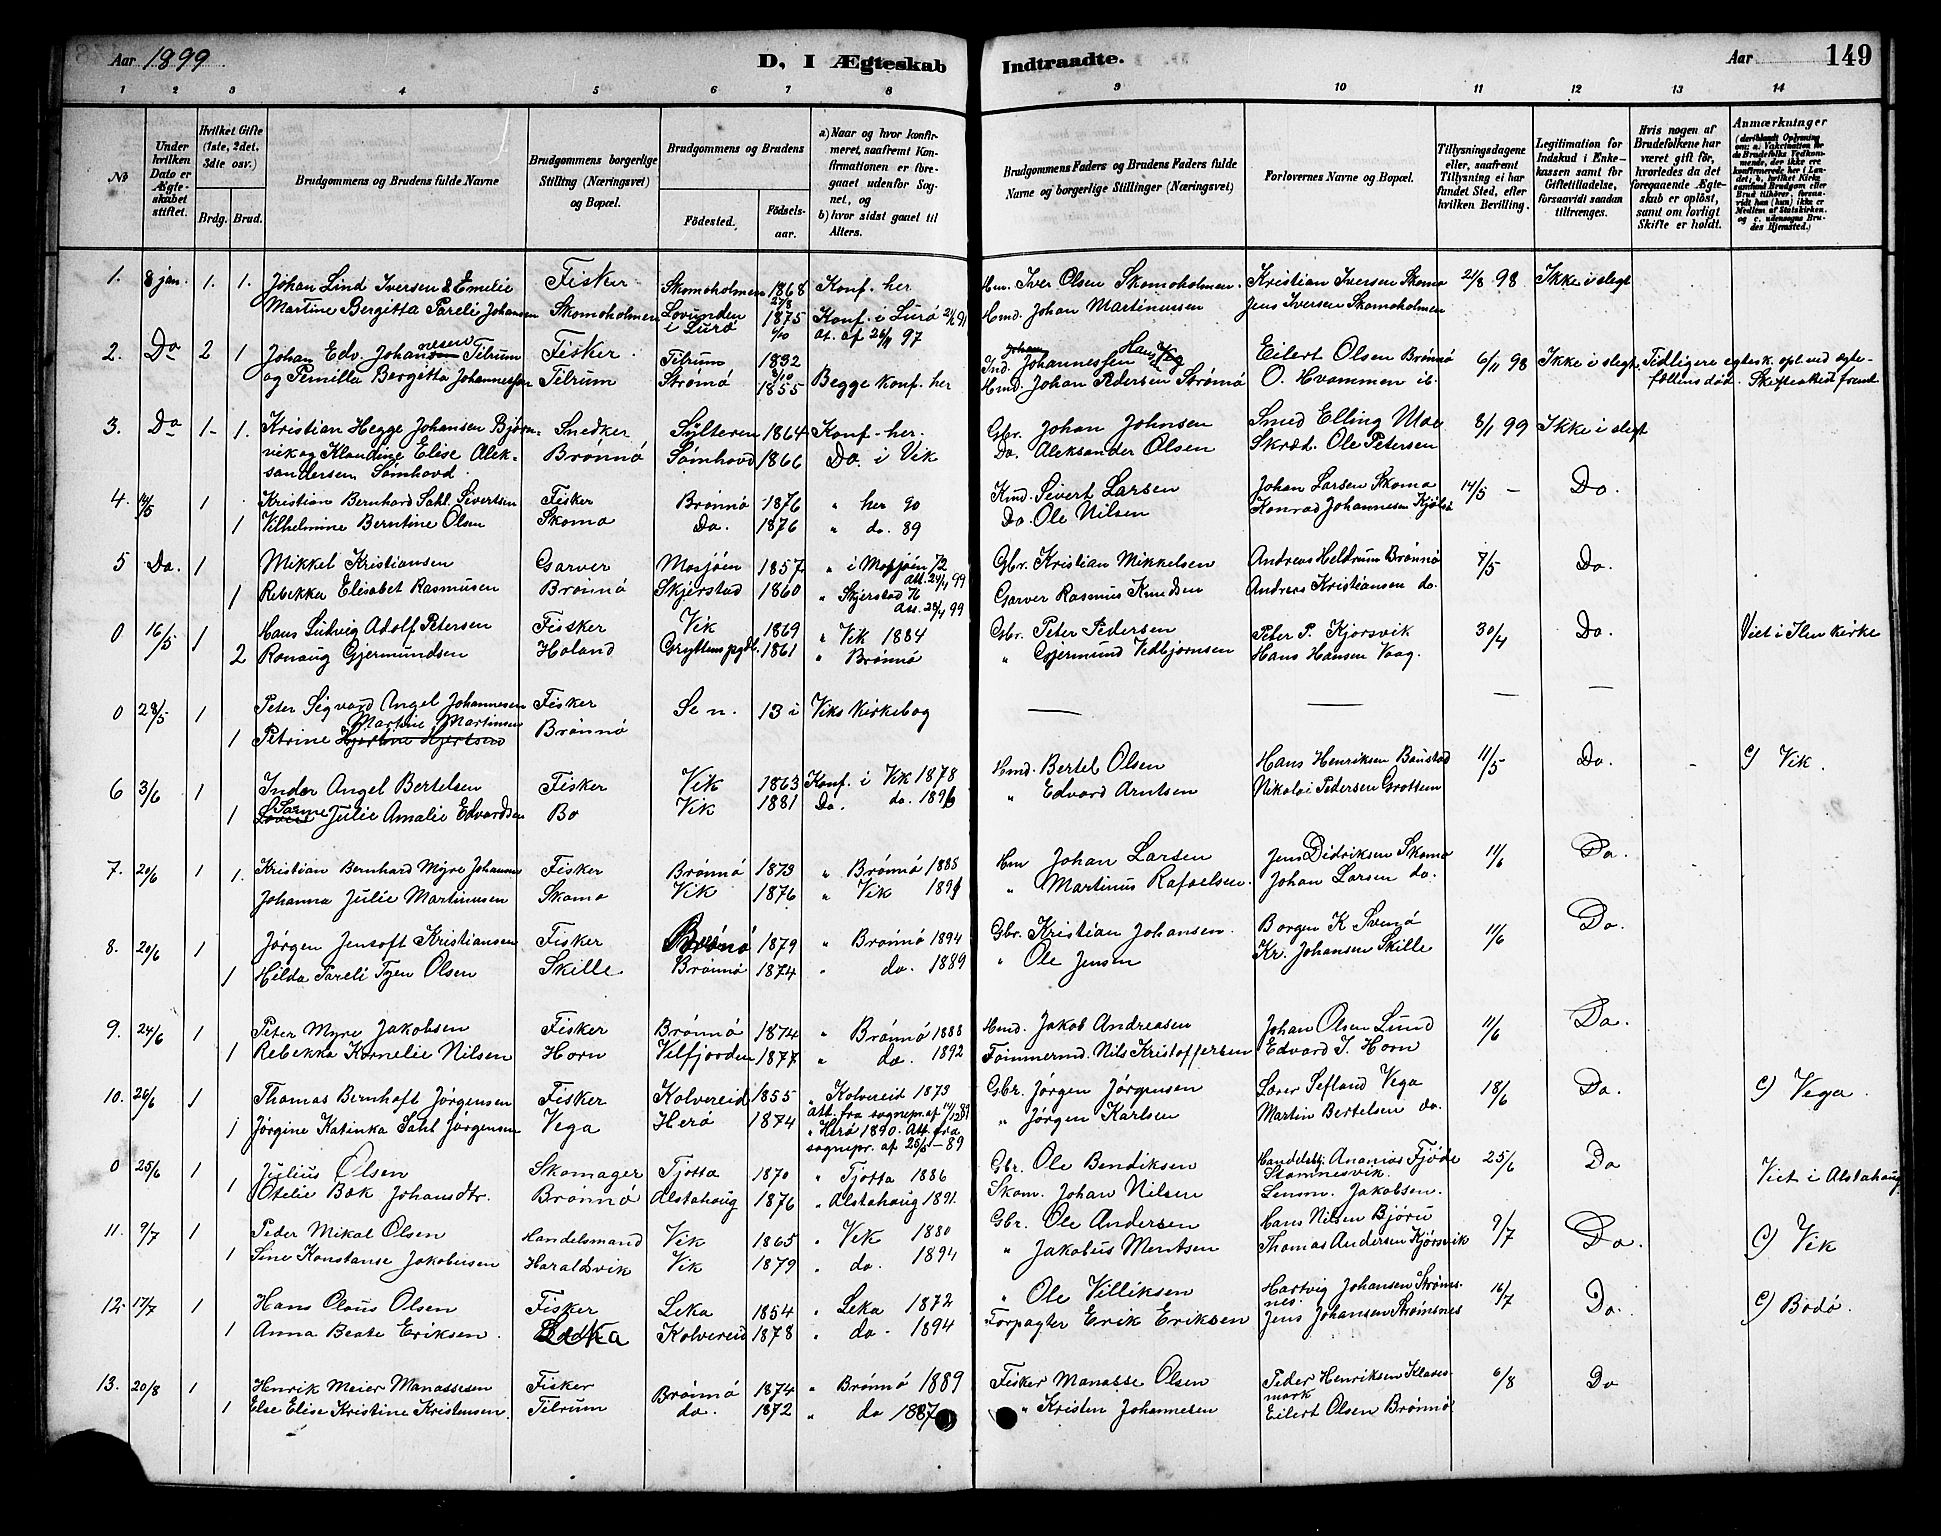 Aar 1899.
D. I Ægteskab
Indtraadte.
Aar
149
1 2 3 4 5 6 7 8 9 10 11 12 13 14
No
Under hvilken Dato er Ægteskabet stiftet.
Hvilket Gifte (1ste, 2det, 3die osv.)
Brdg. Brud.
Brudgommens og Brudens fulde Navne
Brudgommens borgerlige Stilling (Næringsvei) og Bopæl.
Brudgommens og Brudens
Fødested.
Fødselsaar.
a) Naar og hvor konfirmeret, saafremt Konfirmationen er foregaaet udenfor Sognet, og
b) hvor sidst gaaet til Alters.
Brudgommens Faders og Brudens Faders fulde Navne og borgerlige Stillinger (Næringsvei)
Forlovernes Navne og Bopæl.
Tillysningsdagene eller, saafremt Tillysning ei har fundet Sted, efter hvilken Bevilling.
Legitimation for Indskud i Enkekassen samt for Giftetilladelse, forsaavidt saadan tiltrænges.
Hvis nogen af Brudefolkene har været gift før, hvorledes da det foregaaende Ægteskab er opløst, samt om lovligt Skifte er holdt.
Anmærkninger
1. 8 jan. 1. 1. Johan Lind Iversen & Emelie Fisker Skomoholmen 1868 27/8 Konf. her Hm. Iver Olsen Skomoholmen. Kristian Iversen Skomo 21/8 98 Ikke i slegt
Martine Bergitta Pareli Johansen Skomoholmen Lovunden i Lurø 1875 Konf. i Lurø At. af 26/11 97 Hmd. Johan Martinussen Jens Iversen Skomoholmen
2. Do 2 1 Johan Edv. Johannesen Tilrum Fisker Tilrum 1832 Ind. Johannessen Eilert Olsen Brønnø 6/11 98 Ikke i slegt Tidligere egtesk. opl. ved ægte-
og Pernilla Bergitta Johannessen Tilrum Strømø 1855 Begge Konf. her Hmd. Johan Pedersen Strømø O. Hvammen ib. fællens død. Skifteattest freml.
3. Do 1 1. Kristian Hegge Johansen Bjørn- Snedker Sylteren 1864 Konf. her. Gbr. Johan Johnsen Smed Elling Moe 8/1 99 Ikke i slegt
vik og Klaudine Elise Alek- Brønnø Sømhovd 1866 Do. i Vik Do. Aleksander Olsen Skræd. Ole Petersen
sandersen Sømhovd.
4. 14/5 1 Kristian Bernhard Sahl Sivertsen Fisker Brønnø 1876 " her 90 Hmd. Sivert Larsen Johan Larsen Skomo 14/5 — Do.
1 Vilhelmine Berntine Olsen Skomo Do. 1876 " do. 89 Do. Ole Nilsen Konrad Johannesen
5 Do. 1 Mikkel Kristiansen Garver Mosjøen 1857 " i Mosjøen 72 Att. 24/4 99 Gbr. Kristian Mikkelsen Andreas Heldrum Brønnø 7/5 Do.
1 Rebekka Elisabet Rasmusen Brønnø Skjerstad 1860 " Skjerstad 76 Att. 28/4 99 Garver Rasmus Knudsen Andreas Kristiansen do.
0 16/5 1 Hans Ludvig Adolf Petersen Fisker Vik 1869 " Vik 1884 Gbr. Peter Pedersen Peter P. Kjørsvik 30/4 Do. Viet i Ilen kirke
2 Ronaug Gjermundsen Holand Gryttens pgdl. 1861 " Brønnø " Gjermund Vedbjørnsen Hans Hansen Vaag.
0 28/5 1 Peter Sigvard Angel Johannesen Fisker Se n. 13 i Viks Kirkebog — — — —
1 Petrine Martine Martinsen Brønnø
6 3/6 1 Inder Angel Bertelsen Fisker Vik 1863 Konf. i Vik 1878 Hmd. Bertel Olsen Hans Henriksen Baustad 11/5 Do. c) Vik.
1 Julie Amalie Edvardsen Bo Vik 1881 Do. do. 1896 " Edvard Arntsen Nikolai Pedersen Grottem
7. 20/6 1 1. Kristian Bernhard Myre Johansen Fisker Brønnø 1873 " Brønnø 1888 Hm Johan Larsen Jens Didriksen Skomo 11/6 Do.
Johanna Julie Martinusen Skomo Vik 1876 " Vik 1891 " Martinus Rafaelsen. Johan Larsen do.
8. 20/6 1 Jørgen Jentoft Kristiansen Fisker Brønnø 1879 " Brønnø 1894 Gbr. Kristian Johansen. Borgen K Svenø 11/6 Do.
1 Hilda Pareli Olsen Skille Brønnø 1874 " do. 1889 " Ole Jensen Kr. Johansen Skille
9. 24/6 1 Peter Myre Jakobsen Fisker Brønnø 1874 " Brønnø 1888 Hmd. Jakob Andreasen Johan Olsen Lund 11/6 Do.
1 Rebekka Kornelie Nilsen Horn Velfjorden 1877 " do. 1892 Tømmermd. Nils Kristoffersen Edvard I. Horn
10. 26/6 1 Thomas Bernhoft Jørgensen Fisker Kolvereid 1855 " Kolvereid 1873 Gbr. Jørgen Jørgensen Lærer Sefland Vega 18/6 Do. c) Vega.
Att. fra sognepr. af 14/12 89
1 Jørgine Katinka Sahl Jørgensen Vega Herø 1874 " Herø 1890. Att. fra " Jørgen Karlsen Martin Bertelsen do.
sognepr. af 26/5 — 89
0 25/6 1 Julius Olsen Skomager Tjøtta 1870 " Tjøtta 1886 Gbr. Ole Bendiksen Handelsbtj. Ananias Fjøde Stamnesvik. 25/6 Do Viet i Alstahaug
1 Otelie Bak Johansdtr. Brønnø Alstahaug 1876 " Alstahaug 1891. Skom. Johan Nilsen Lensm. Jakobsen.
11. 9/7 1 Peder Mikal Olsen Handelsmand Vik 1865 " Vik 1880 Gbr. Ole Andersen Hans Nilsen Bjøru 9/7 Do. c) Vik
1 Sine Konstanse Jakobersen Haraldvik Vik 1879 " do. 1894 " Jakobus Mentsen Thomas Andersen Kjørsvik
12. 17/7 1 Hans Olaus Olsen Fisker Leka 1854 " Leka 1872 " Ole Villiksen Hartvig Johansen Strøms- nes. 16/7 Do. c) Bodø.
1 Anna Beate Eriksen. Leka Kolvereid 1878 " do. 1894 Forpagter Erik Eriksen Jens Johansen Strømsnes
13. 20/8 1 Henrik Meier Manassesen Fisker Brønnø 1874 " Brønnø 1889 Fisker Manasse Olsen Peder Henriksen Klaves- mark 6/8 Do
1 Else Elise Kristine Kristensen. Tilrum do. 1872 " do 1887 " Kristen Johannesen Eilert Olsen Brønnø